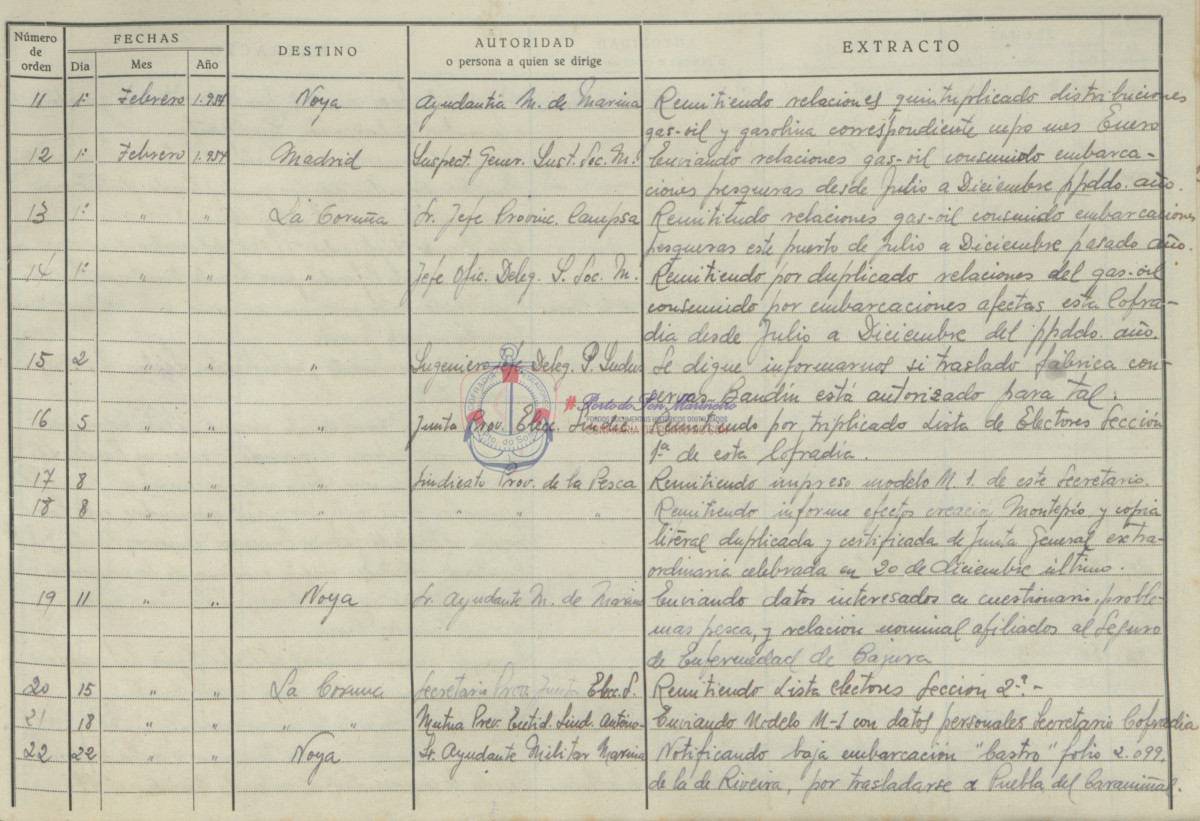 Número de orden FECHAS DESTINO AUTORIDAD EXTRACTO
Dia Mes Año o persona a quien se dirige
11 1º Febrero 1.954 Noya Ayudantia M. de Marina Remitiendo relaciones quintuplicado distribuciones
gas-oil y gasolina correspondiente mes Enero
12 1º Febrero 1.954 Madrid Inspect. Gener. Inst. Soc. M. Enviando relaciones gas-oil consumido embarca-
ciones pesqueras desde Julio a Diciembre ppddo. año.
13 1º " " La Coruña Sr. Jefe Provinc. Campsa Remitiendo relaciones gas-oil consumido embarcaciones
pesqueras este puerto de Julio a Diciembre pasado año.
14 1º " " " Jefe Ofic. Deleg. I. Soc. M. Remitiendo por duplicado relaciones del gas-oil
consumido por embarcaciones afectas esta Cofra-
dia desde Julio a Diciembre del ppddo. año.
15 2 " " " Ingeniero Deleg. P. Indus Se digne informarnos si traslado fábrica con-
servas Bandín está autorizado para tal.
16 5 " " " Junta Prov. Elec. Sindic. Remitiendo por triplicado Lista de Electores Sección
1ª de esta Cofradia.
17 8 " " " Sindicato Prov. de la Pesca Remitiendo impreso modelo M. 1. de este Secretario.
18 8 " " " " " " Remitiendo informe efectos creación Montepío y copia
literal duplicada y certificada de Junta General extra-
ordinaria celebrada en 20 de diciembre último.
19 11 " " Noya Sr. Ayudante M. de Marina Enviando datos interesados en cuestionario proble-
mas pesca, y relación nominal afiliados al Seguro
de Enfermedad de Bajura
20 15 " " La Coruna Secretario Prov. Junta Elec. S. Remitiendo Lista electores Seccion 2ª.-
21 18 " " " " Mutua Prev. Entid. Sind. Antóno- Enviando Modelo M-1 con datos personales Secretario Cofradia
22 22 " " Noya Sr. Ayudante Militar Marina Notificando baja embarcación "Castro" folio 2.099.
de la de Riveira, por trasladarse a Puebla del Caramiñal.
Porto do Son Mariñeiro